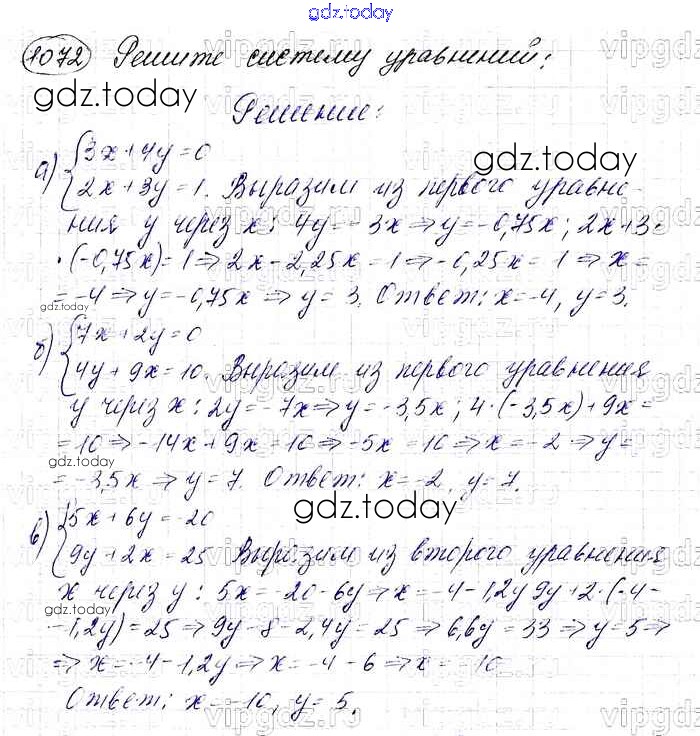 gdz.today
1072 Решите систему уравнений:
gdz.today
Решение:
а) {3x+4y=0
gdz.today
{2x+3y=1. Выразим из первого уравне-
ния y через x: 4y=-3x⇒y=-0,75x; 2x+3·
·(-0,75x)=1⇒2x-2,25x=1⇒-0,25x=1⇒x=
=-4⇒y=-0,75x⇒y=3. Ответ: x=-4, y=3.
gdz.today
б) {7x+2y=0
{4y+9x=10. Выразим из первого уравнения
y через x: 2y=-7x⇒y=-3,5x; 4·(-3,5x)+9x=
=10⇒-14x+9x=10⇒-5x=10⇒x=-2⇒y=
gdz.today
=-3,5x⇒y=7. Ответ: x=-2, y=7.
gdz.today
в) {5x+6y=-20
{9y+2x=25 Выразим из второго уравнения
x через y: 5x=-20-6y⇒x=-4-1,2y 9y+2·(-4-
gdz.today
-1,2y)=25⇒9y-8-2,4y=25⇒6,6y=33⇒y=5⇒
⇒x=-4-1,2y⇒x=-4-6⇒x=-10.
Ответ: x=-10, y=5.